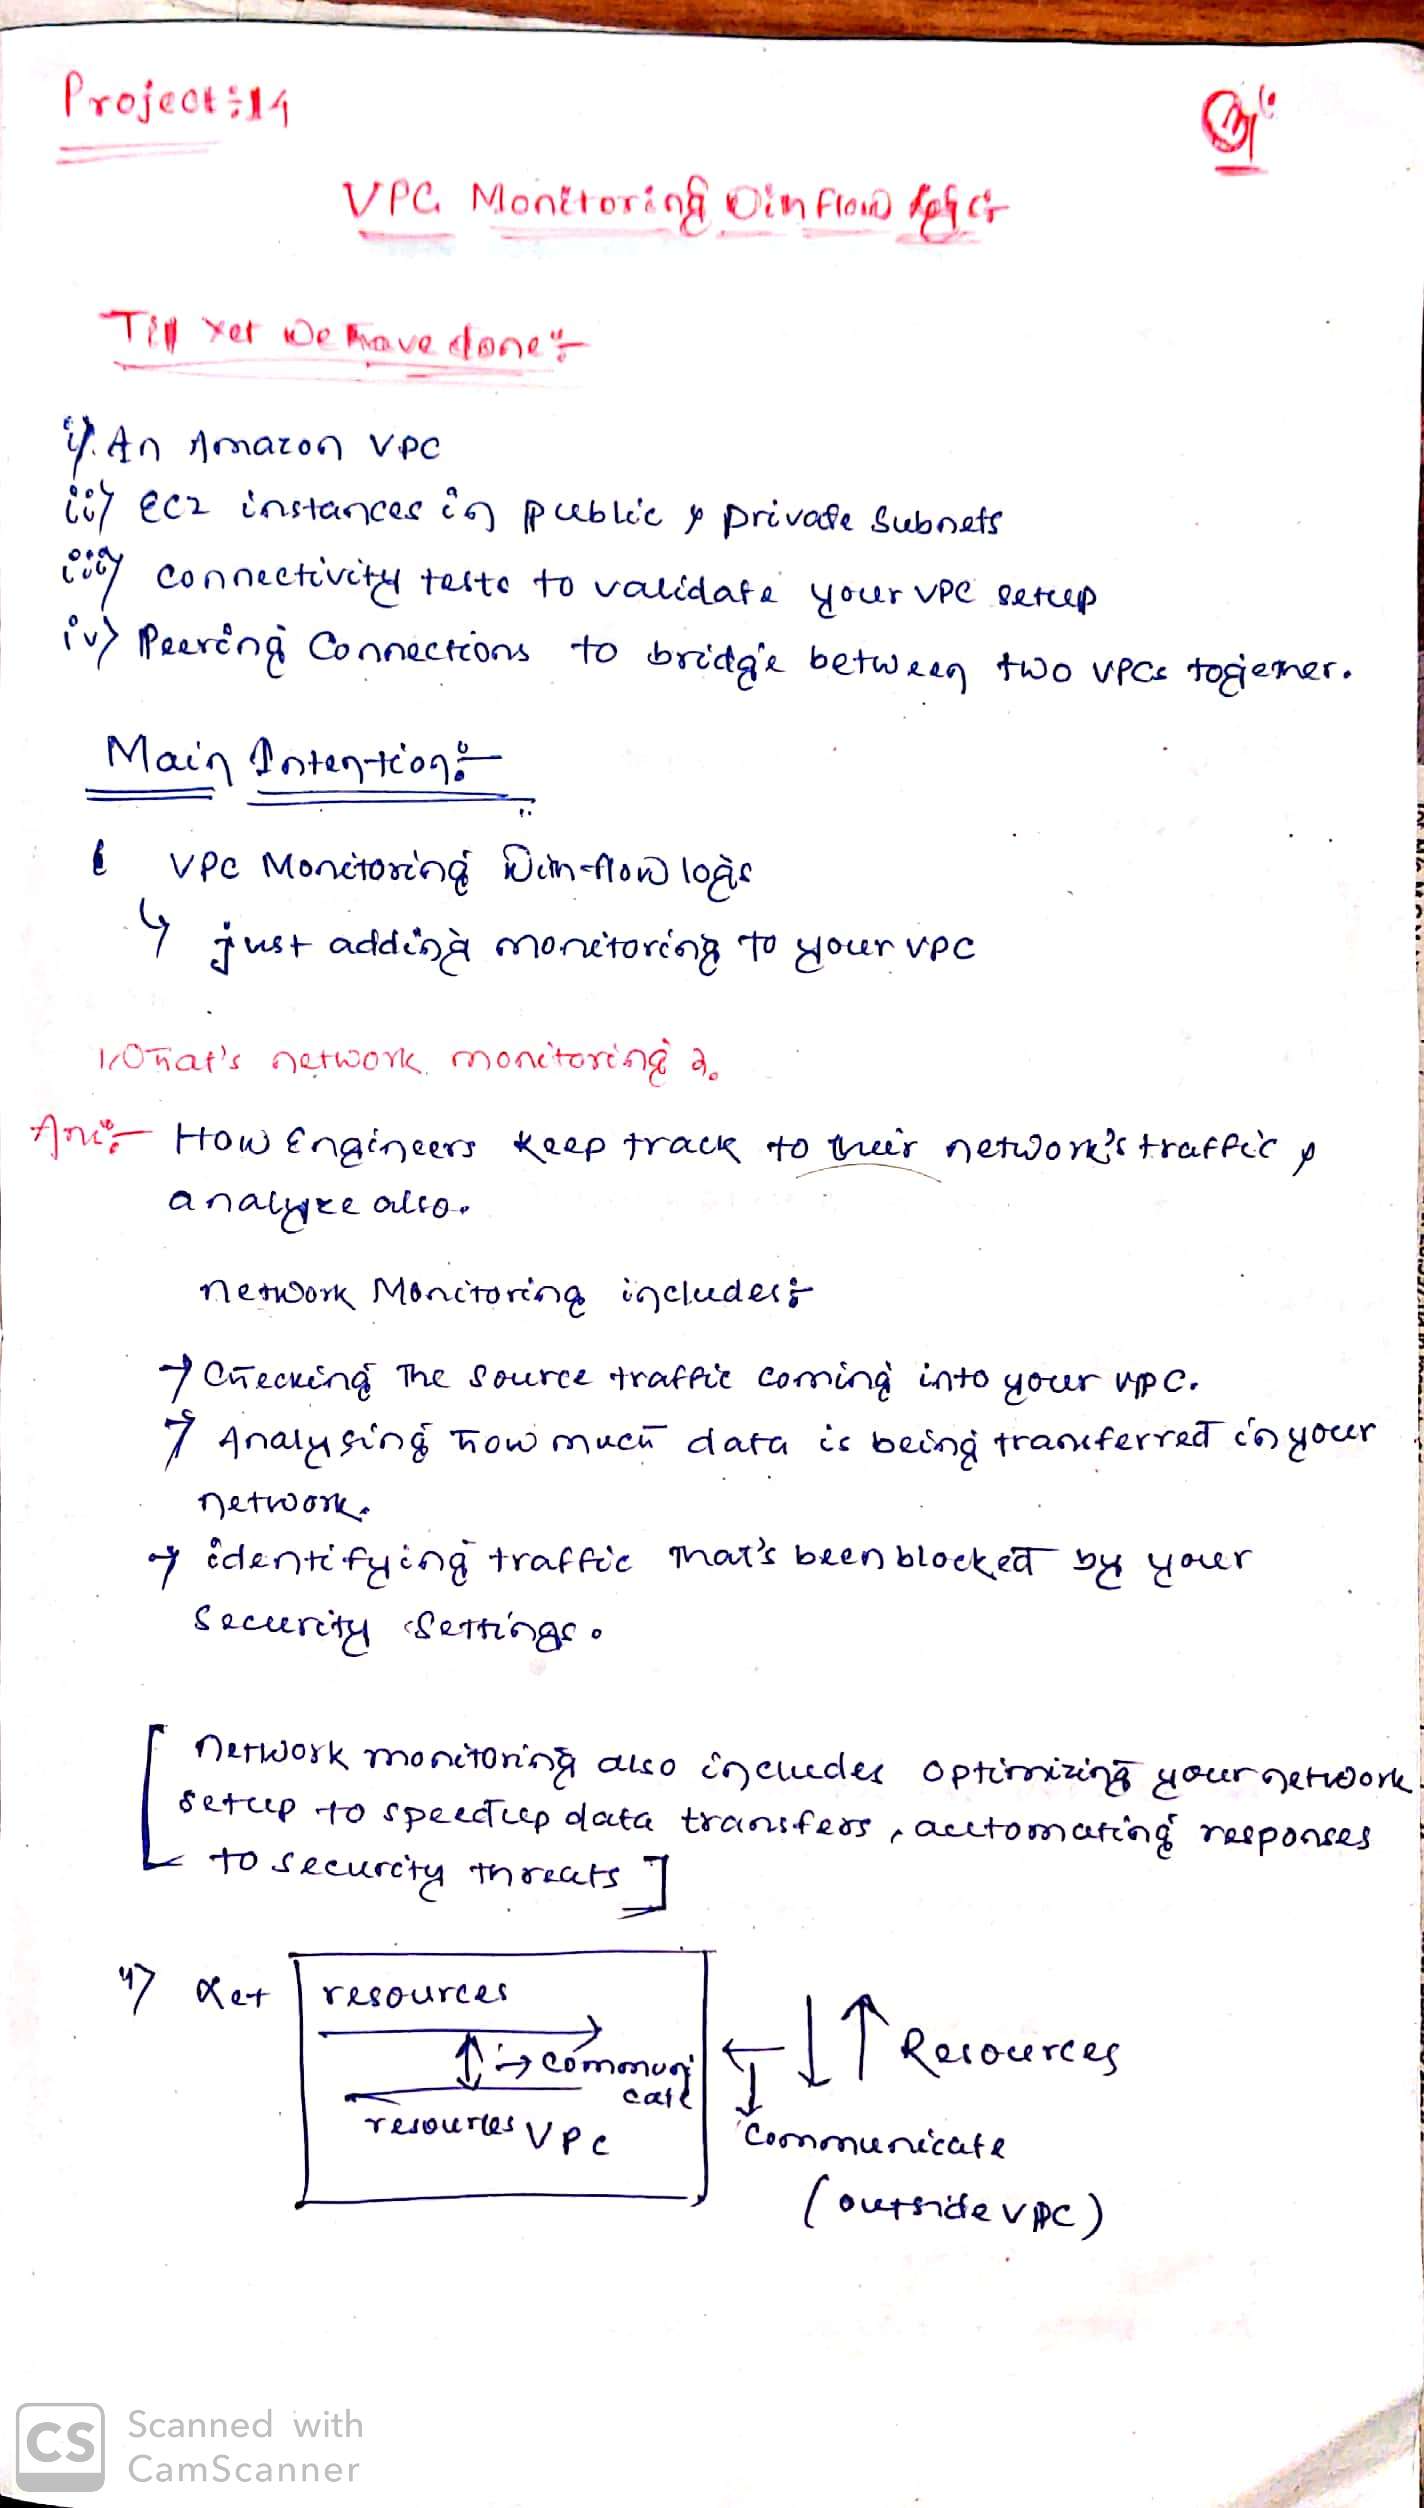 Project:14
VPC Monitoring with flow logs
Till Yet We have done:-
i). An Amazon VPC
ii) EC2 instances in public & private Subnets
iii) connectivity tests to validate your VPC setup
iv) Peering Connections to bridge between two VPCs together.
Main Intention:-
VPC Monitoring with-flow logs
↳ just adding monitoring to your VPC
What's network monitoring ?
Ans:- How Engineers keep track to their network's traffic &
analyze also.
network Monitoring includes:-
→ Checking The Source traffic coming into your VPC.
→ Analysing how much data is being transferred in your
network.
→ identifying traffic that's been blocked by your
Security Settings.
[ network monitoring also includes optimizing your network
setup to speedup data transfers, automating responses
to security threats ]
Let
resources
→ communi
cate
resources VPC
↓↑ Resources
Communicate
(outside VPC)
CS Scanned with
CamScanner